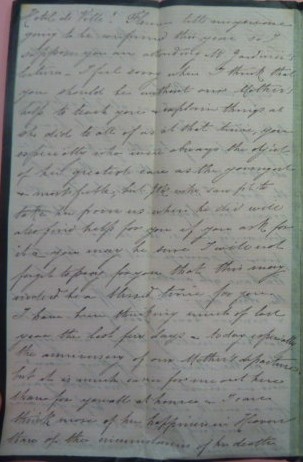 Hotel de Ville! Flora tells me you are
going to be confirmed this year so I
suppose you are attending Mr Gardiner's
lecture. I feel sorry when I think that
you should be without our Mother's
help to teach you & explain things as
she did to all of us at that time, you
especially who were always the object
of her greatest care as the youngest
& most feeble, but He who saw fit to
take her from us when he did will
also find help for you if you ask for
it & you may be sure I will not
forget to pray for you that this may
indeed be a blessed time for you
I have been thinking much of last
year the last few days & today especially
the anniversary of our Mother's departure
but it is much same for me out here
than for you all at home & I can
think more of her happiness in Heaven
than of the circumstances of her death